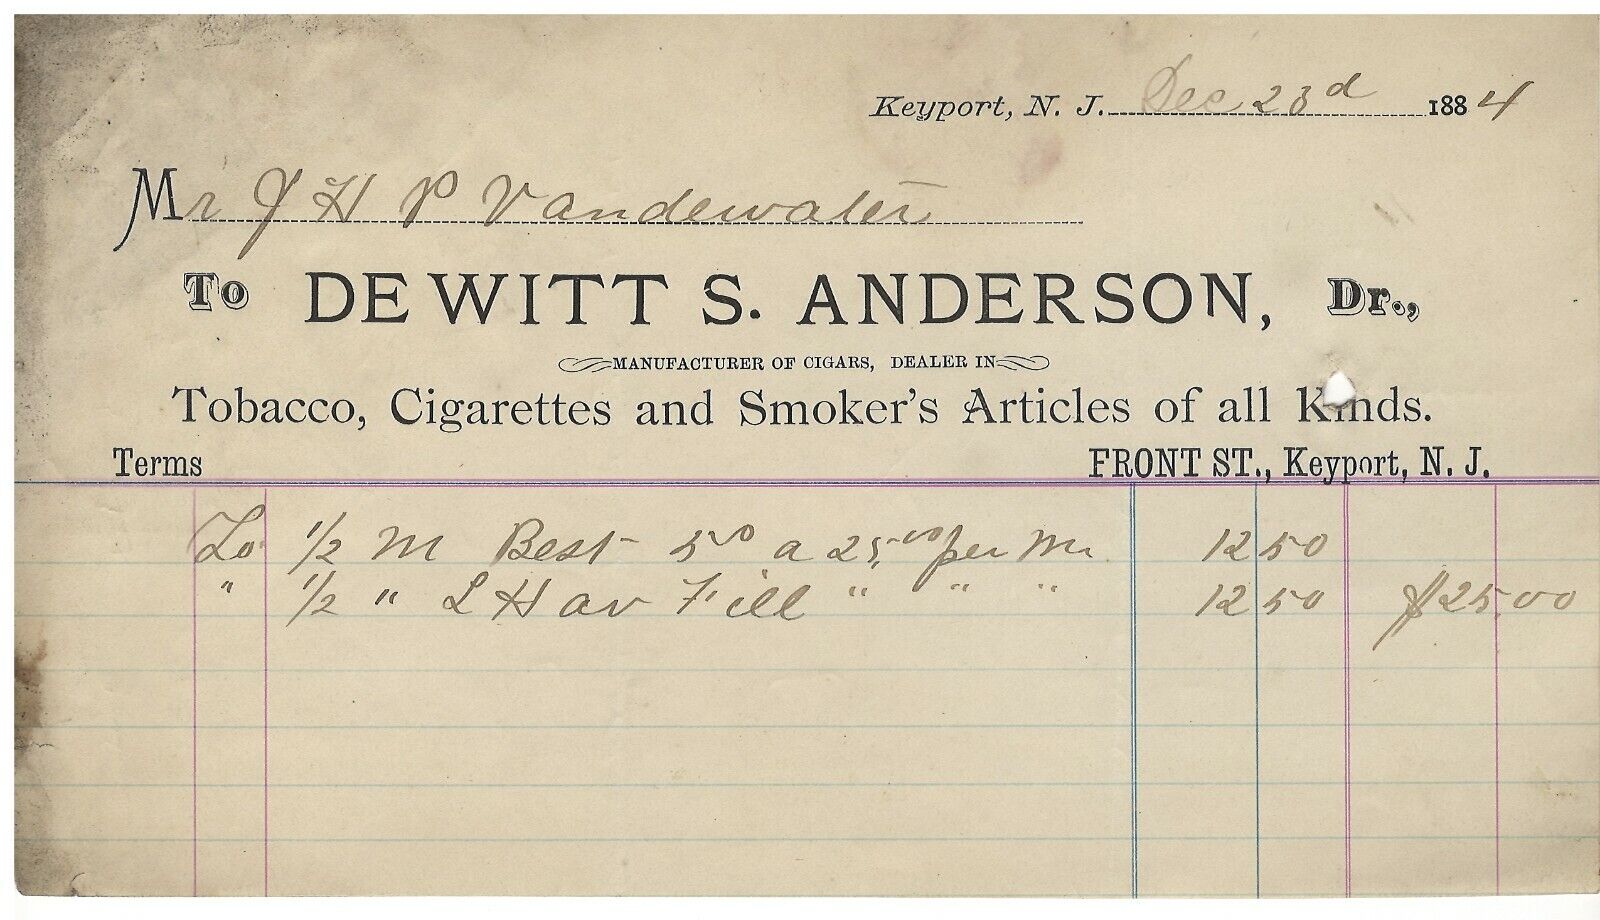 Keyport, N. J. Dec 23d 1884
Mr J H P Vandewater
To DE WITT S. ANDERSON, Dr.,
MANUFACTURER OF CIGARS, DEALER IN
Tobacco, Cigarettes and Smoker's Articles of all Kinds.
Terms FRONT ST., Keyport, N. J.
To 1/2 M Best 50 a 25,00 per M 12 50
" 1/2 " L Hav Fill " " " 12 50 $25.00